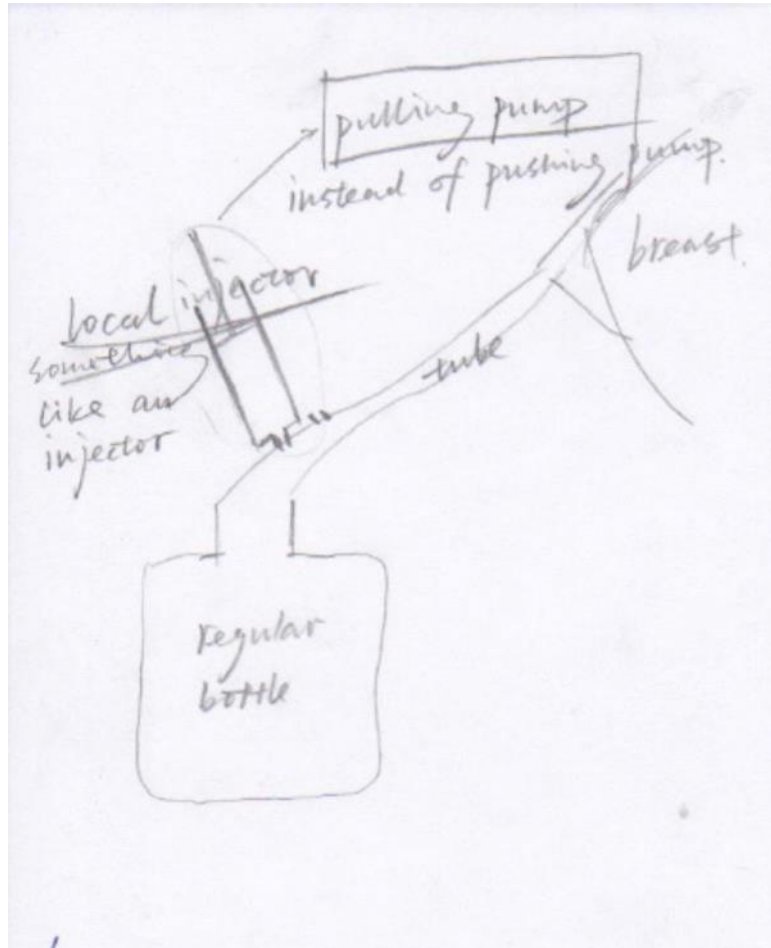 pulling pump
instead of pushing pump.
breast.
local injector
something
like an
injector
tube
regular
bottle